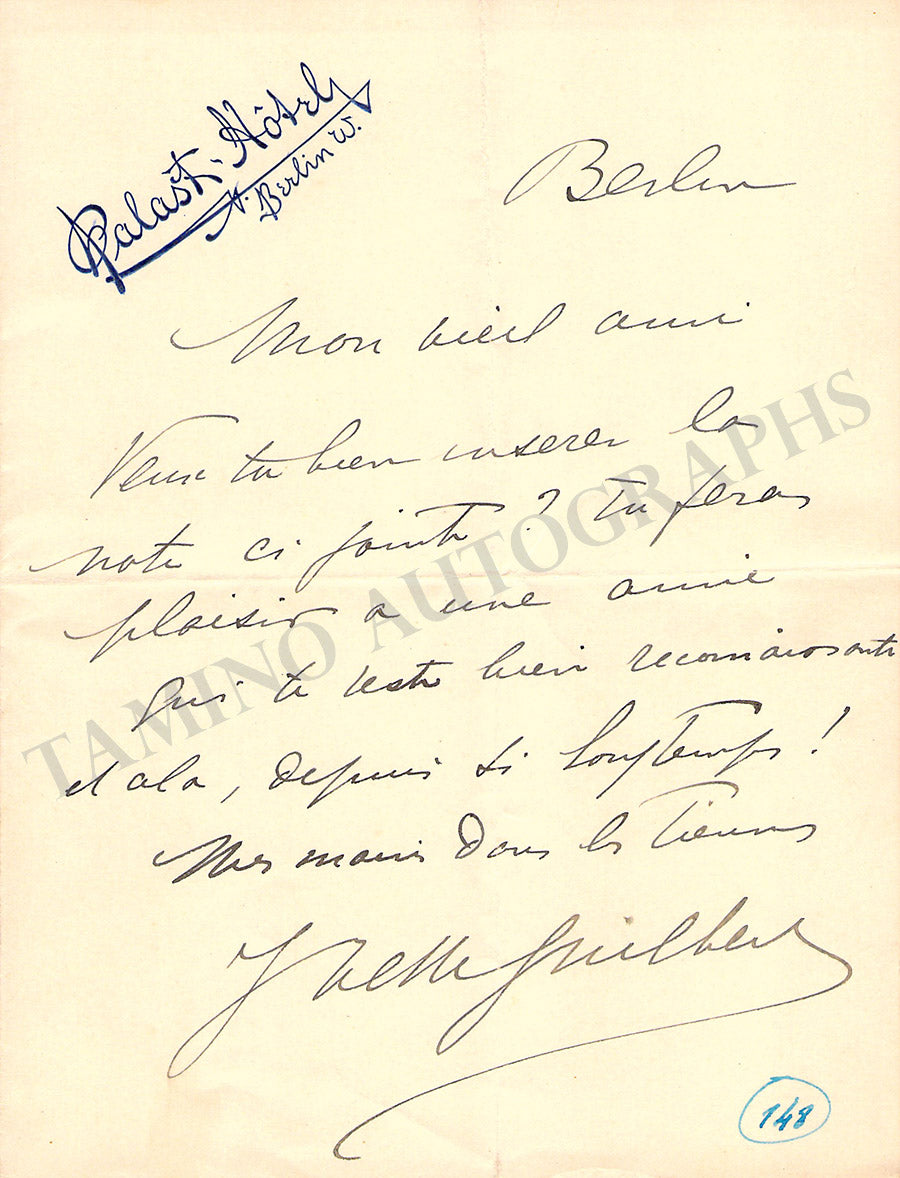 Palast-Hôtel
Berlin W.
Berlin
Mon vieil ami
Veux tu bien inserer la
note ci jointe ? Tu feras
plaisir a une amie
qui te reste bien reconnaissante
et cela, depuis si longtemps !
Mes mains dans les Tiennes
Yvette Guilbert
148
TAMINO AUTOGRAPHS